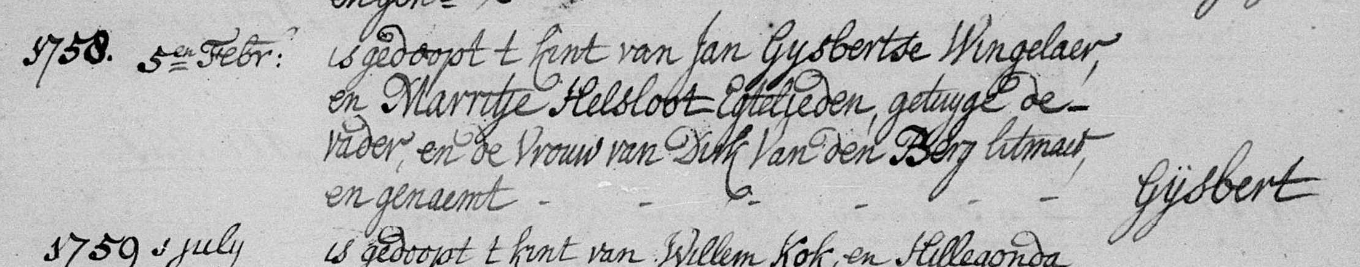 1758. 5en Febr: is gedoopt t kint van Jan Gysbertse Wingelaer,
en Marritje Helsloot Egteljeden, getuyge de-
vader, en de Vrouw van Dirk Van den Berg litmaet,
en genaemt - - - - - - Gijsbert
1759 1 july is gedoopt t kint van Willem Kok, en Hillegonda